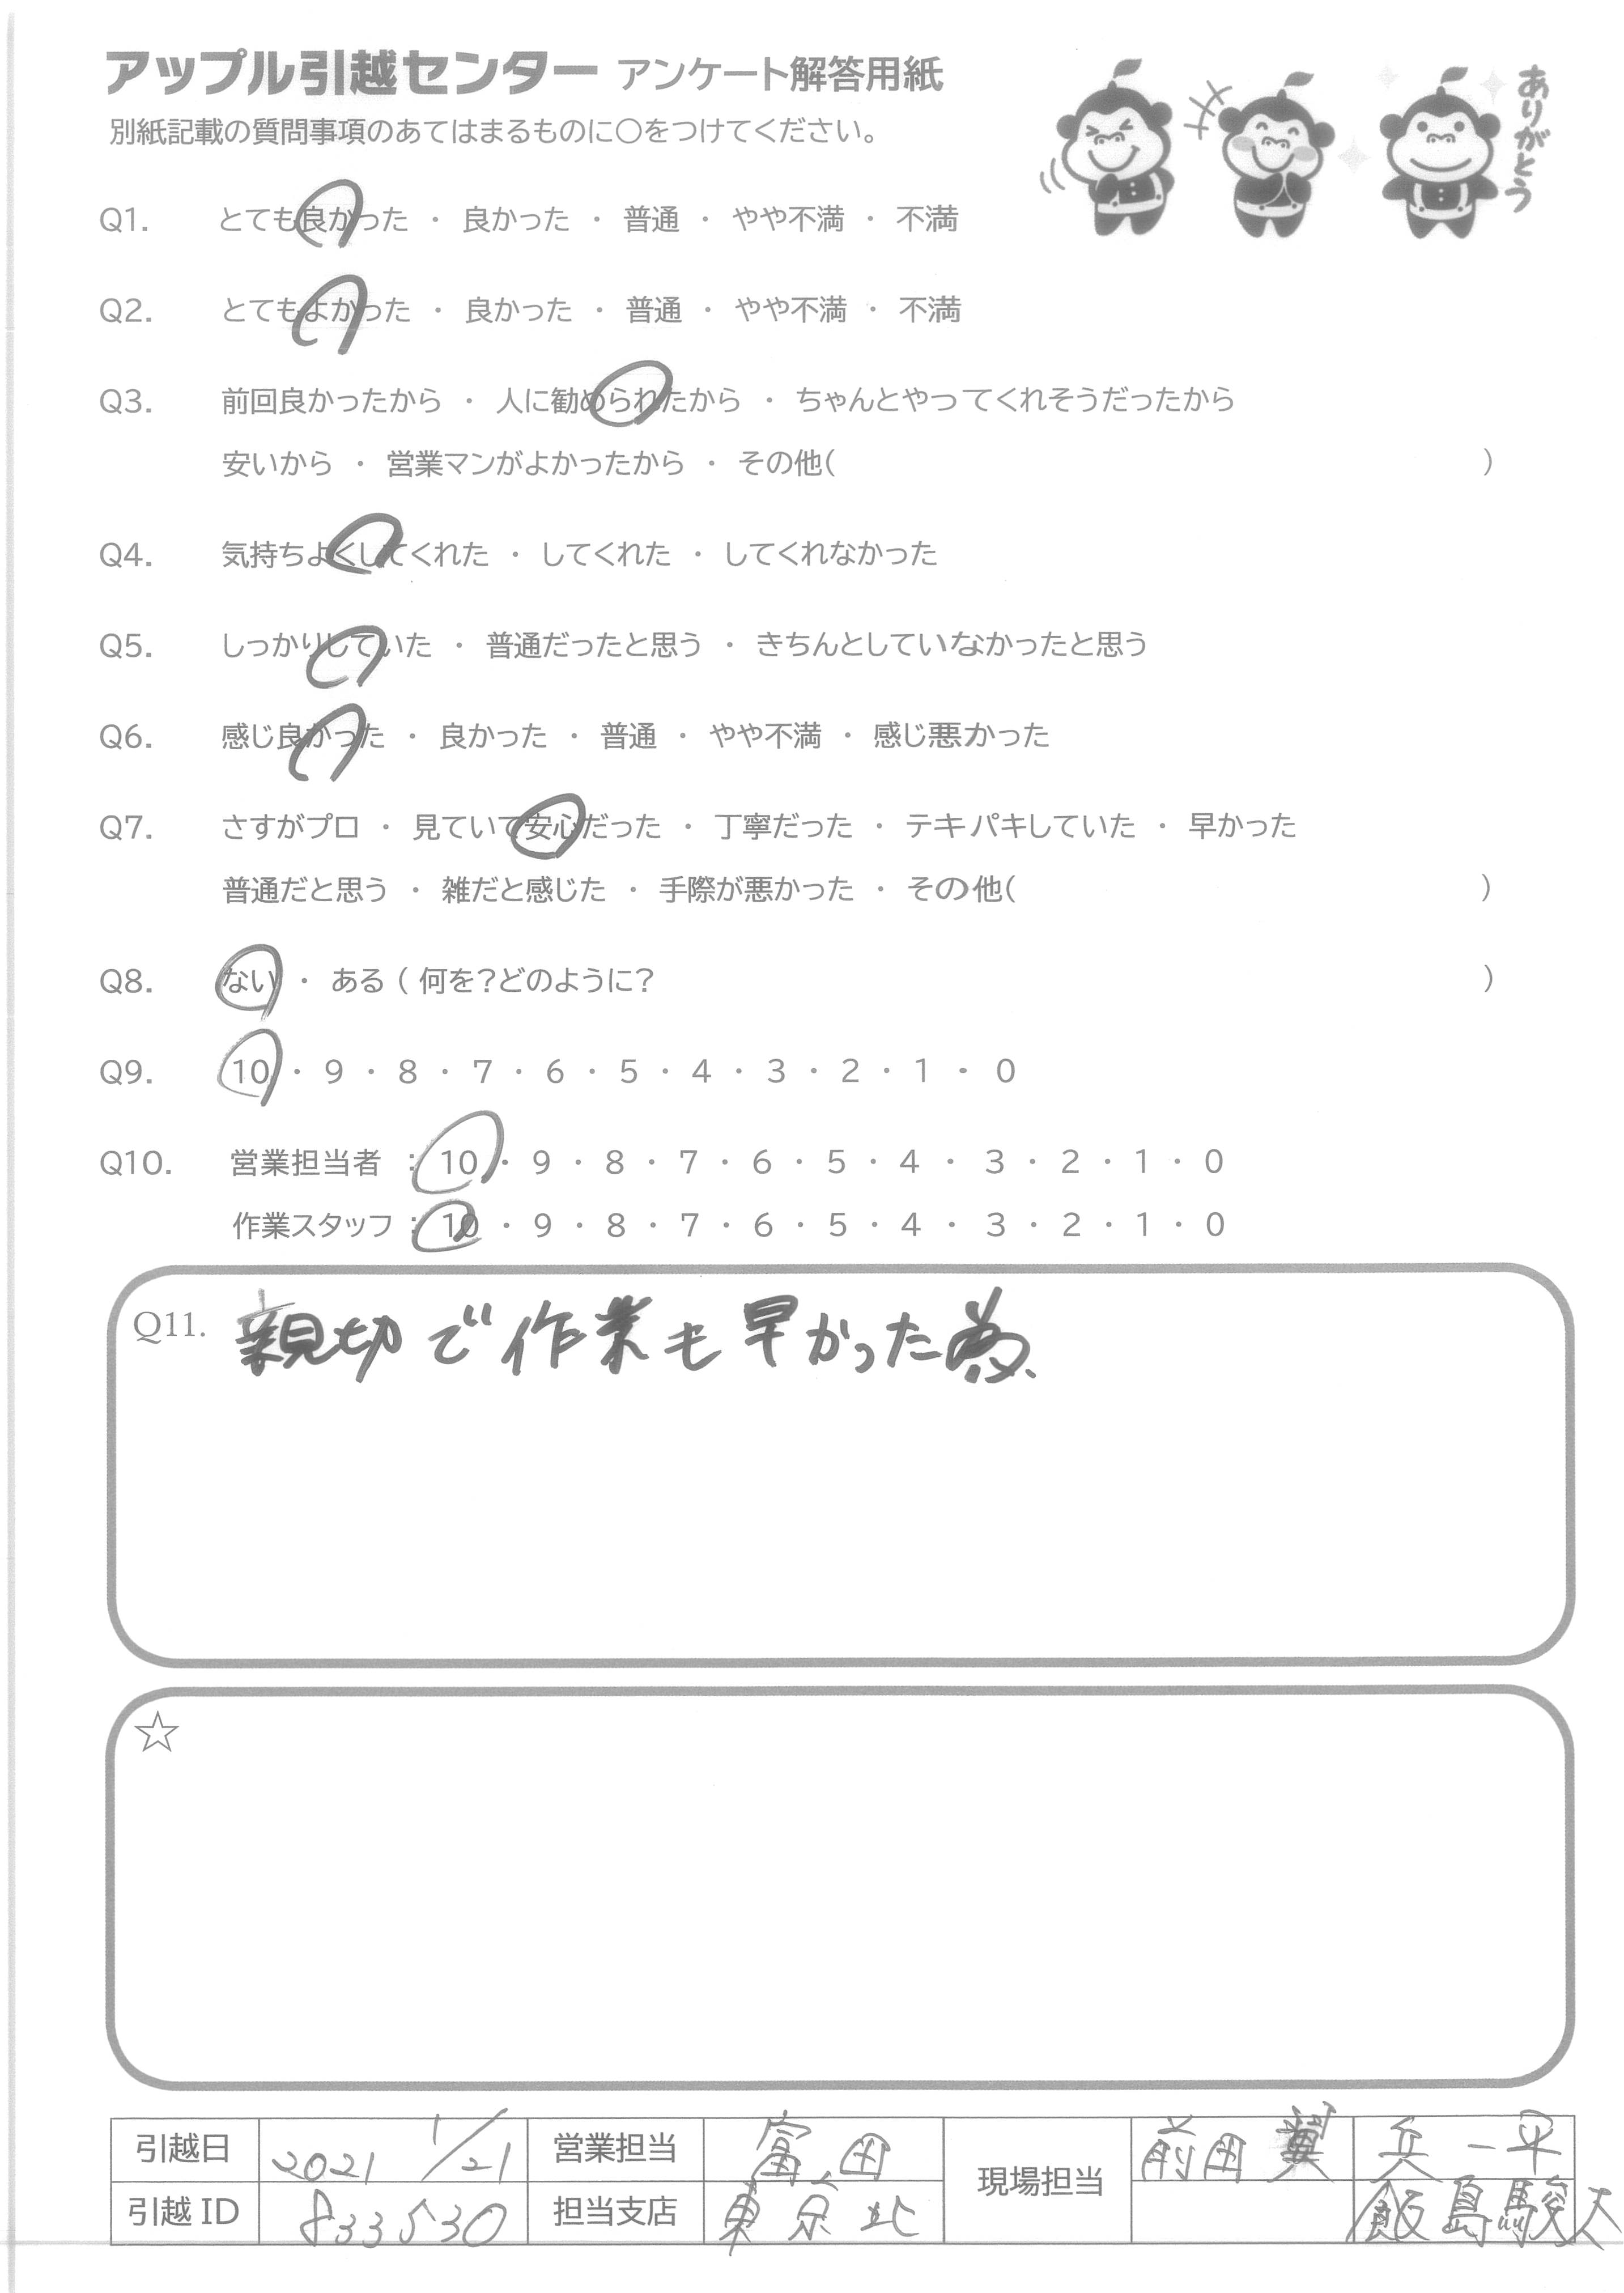 アップル引越センター アンケート解答用紙
ありがとう
別紙記載の質問事項のあてはまるものに○をつけてください。
Q1. とても良かった ・ 良かった ・ 普通 ・ やや不満 ・ 不満
Q2. とてもよかった ・ 良かった ・ 普通 ・ やや不満 ・ 不満
Q3. 前回良かったから ・ 人に勧められたから ・ ちゃんとやってくれそうだったから
安いから ・ 営業マンがよかったから ・ その他( )
Q4. 気持ちよくしてくれた ・ してくれた ・ してくれなかった
Q5. しっかりしていた ・ 普通だったと思う ・ きちんとしていなかったと思う
Q6. 感じ良かった ・ 良かった ・ 普通 ・ やや不満 ・ 感じ悪かった
Q7. さすがプロ ・ 見ていて安心だった ・ 丁寧だった ・ テキパキしていた ・ 早かった
普通だと思う ・ 雑だと感じた ・ 手際が悪かった ・ その他( )
Q8. ない ・ ある ( 何を?どのように? )
Q9. 10 ・ 9 ・ 8 ・ 7 ・ 6 ・ 5 ・ 4 ・ 3 ・ 2 ・ 1 ・ 0
Q10. 営業担当者 : 10 ・ 9 ・ 8 ・ 7 ・ 6 ・ 5 ・ 4 ・ 3 ・ 2 ・ 1 ・ 0
作業スタッフ : 10 ・ 9 ・ 8 ・ 7 ・ 6 ・ 5 ・ 4 ・ 3 ・ 2 ・ 1 ・ 0
Q11. 親切で作業も早かった為、
☆
引越日 2021 1/21 営業担当 富田 現場担当 前田 翼 兵 一平
引越 ID 833530 担当支店 東京北 飯島駿太